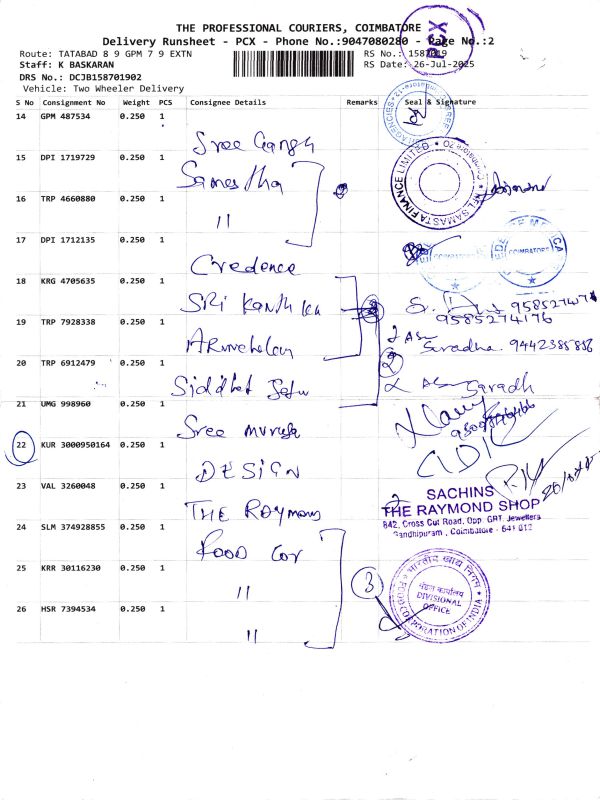 THE PROFESSIONAL COURIERS, COIMBATORE
Delivery Runsheet - PCX - Phone No.:9047080280 - Page No.:2
Route: TATABAD 8 9 GPM 7 9 EXTN
RS No.: 1587019
Staff: K BASKARAN
RS Date: 26-Jul-2025
DRS No.: DCJB158701902
Vehicle: Two Wheeler Delivery
PCX
S No Consignment No Weight PCS Consignee Details Remarks Seal & Signature
14 GPM 487534 0.250 1
Sree Gangh
15 DPI 1719729 0.250 1
Samastha
NFL SAMASTA FINANCE LIMITED
16 TRP 4660880 0.250 1
"
17 DPI 1712135 0.250 1
Credence
COIMBATORE
COIMBATORE
18 KRG 4705635 0.250 1
SRi Kanth
9585274176
9585274176
19 TRP 7928338 0.250 1
Saradha 9442385856
20 TRP 6912479 0.250 1
2
Siddhet
Saradh
21 UMG 998960 0.250 1
Sree muruga
22 KUR 3000950164 0.250 1
DESIGN
23 VAL 3260048 0.250 1
THE Raymons
SACHINS
THE RAYMOND SHOP
842, Cross Cut Road, Opp. GRT. Jewellers
Gandhipuram, Coimbatore - 641 012
24 SLM 374928855 0.250 1
Food Cor
25 KRR 30116230 0.250 1
"
3
भारतीय खाद्य निगम
मंडल कार्यालय
DIVISIONAL
OFFICE
FOOD CORPORATION OF INDIA
26 HSR 7394534 0.250 1
"